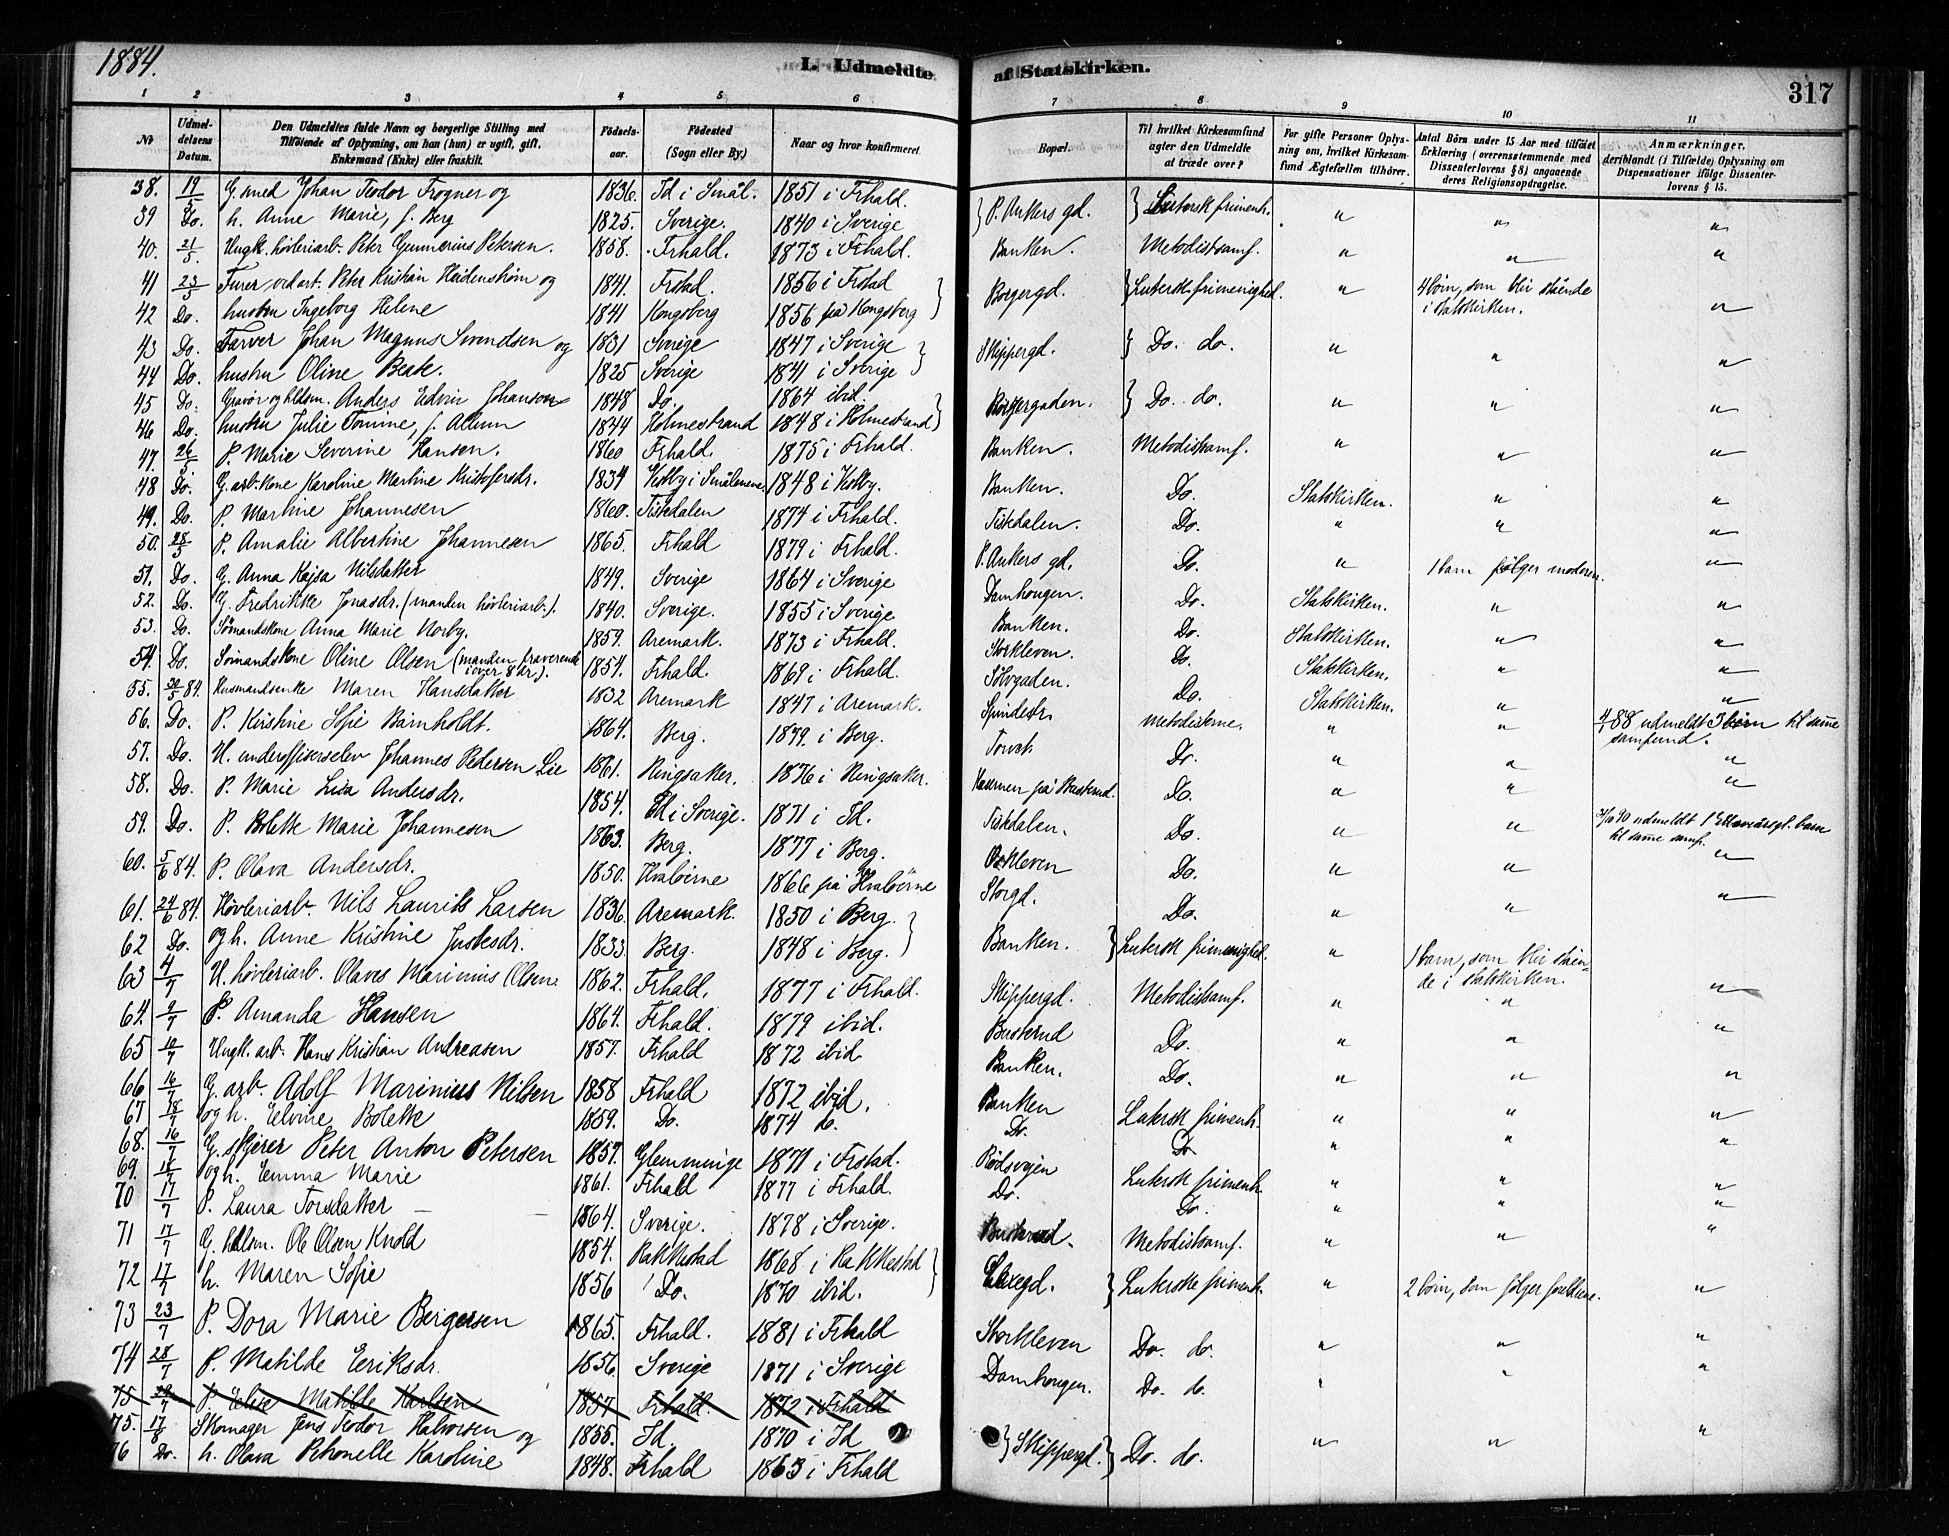 1884.
L. Udmeldte af Statskirken.
317
1 2 3 4 5 6 7 8 9 10 11
№ | Udmeldelsens Datum. | Den Udmeldtes fulde Navn og borgerlige Stilling med Tilföiende af Oplysning, om han (hun) er ugift, gift, Enkemand (Enke) eller fraskilt. | Födselsaar. | Födested (Sogn eller By.) | Naar og hvor konfirmeret. | Bopæl. | Til hvilket Kirkesamfund agter den Udmeldte at træde over? | For gifte Personer Oplysning om, hvilket Kirkesamfund Ægtefællen tilhörer. | Antal Börn under 15 Aar med tilföiet Erklæring (overensstemmende med Dissenterlovens § 8) angaaende deres Religionsopdragelse. | Anmærkninger, deriblandt (i Tilfælde) Oplysning om Dispensationer ifölge Dissenterlovens § 15.
38. 19/5 G. med Johan Teodor Trogner og 1836. Id i Smål. 1851 i Frhald. } P. Ankers gd. } Lutersk frimenh. " " "
39 Do. h. Anne Marie, f. Berg 1825. Sverige. 1840 i Sverige
40. 21/5 Ungk. høvleriarb. Peter Gunnerius Petersen. 1858. Frhald. 1873 i Frhald. Banken. Metodistsamf. " " "
41 23/5 Furer ved art. Peter Kristian Heidenstrøm og 1841. Frstad. 1856 i Frstad } Borgergd. } Lutersk frimenighed. " 4 børn, som blir stående i statskirken. "
42 Do. hustru Ingeborg Helene 1841 Kongsberg 1856 på Kongsberg
43 Do. Farver Johan Magnus Svendsen og 1831 Sverige 1847 i Sverige } Skippergd. } Do. do. " " "
44 Do. hustru Oline Beate. 1825 Sverige 1841 i Sverige
45 Do. Gravør og hldsm. Anders Edvin Johanson 1848 Do. 1864 ibid. } Borgergaden. } Do. do. " " "
46 Do. hustru Julie Tomine, f. Allum 1844 Holmestrand 1848 i Holmestrand
47. 26/5 P. Marie Severine Hansen. 1860 Frhald. 1875 i Frhald. Banken. Metodistsamf. " " "
48 Do. G. arb. kone Karoline Martine Kristofersdr. 1834 Vestby i Smålenene 1848 i Vestby. Banken. Do. Statskirken. " "
49. Do. P. Martine Johannesen 1860. Tistedalen 1874 i Frhald. Tistedalen. Do. " " "
50. 28/5 P. Amalie Albertine Johannesen 1865. Frhald 1879 i Frhald. P. Ankers gd. Do. " 1 barn følger moderen. "
51. Do. G. Anna Kajsa Nilsdatter 1849. Sverige 1864 i Sverige Damhougen. Do. Statskirken. " "
52. Do. G. Fredrikke Jonasdr. (manden høvleriarb.). 1840. Sverige. 1855 i Sverige Banken. Do. Statskirken. " "
53. Do. Sømandskone Anna Marie Norby. 1859. Aremark. 1873 i Frhald. Storkleven. Do. Statskirken. " "
54. Do. Sømandskone Oline Olsen (manden fraværende i over 8 år). 1854. Frhald. 1869 i Frhald. Sølvgaden. Do. Statskirken. " "
55. 30/5 84. Husmandsenke Maren Hansdatter 1832 Aremark 1847 i Aremark. Spindestr. Metodisterne. " " 4/7 88 udmeldt 3 børn til samme samfund.
56. Do. P. Kirstine Sofie Barnholdt. 1864. Berg. 1879. i Berg. Torvet Do. " " "
57. Do. U. underoffiserselev Johannes Pedersen Lie 1861. Ringsaker. 1876 i Ringsaker. Kasernen på Busterud. Do. " " "
58. Do. P. Marie Lisa Andersdr. 1854. Ed i Sverige. 1871 i Id. Tistedalen. Do. " " udmeldt 1 barn til samme samf.
59. Do. P. Bolette Marie Johannesen 1863. Berg. 1877 i Berg. Oskleven Do. " " "
60. 5/6 84. P. Olava Andersdr. 1850. Hvaløerne 1866 på Hvaløerne Storgd. Do. " " "
61. 24/6 84. Høvleriarb. Nils Laurits Larsen 1836. Aremark. 1850 i Berg. } Banken. } Lutersk frimenighed. " 1 barn, som blir stående i statskirken. "
62 Do. og h. Anne Kristine Justesdr. 1833 Berg. 1848 i Berg.
63 4/7 U. høvleriarb. Olaves Marinius Olsen. 1862. Frhald. 1877 i Frhald. Skippergd. Metodistsamf. " " "
64. 9/7 P. Amanda Hansen 1864. Frhald. 1879 ibid. Busterud Do. " " "
65 10/7 Ungk. arb. Hans Kristian Andreasen 1857. Frhald 1872 ibid Banken. Do. " " "
66 16/7 G. arb. Adolf Marinius Nilsen 1858 Frhald 1872 ibid. Banken Lutersk frimenh. " " "
67 18/7 og h. Elvine Bolette 1859. Do. 1874 do. Do. Do " " "
68. 16/7 G. skjører Peter Anton Petersen 1857. Glemminge 1871 i Frstad. Rødsvejen Lutersk frimenh. " " "
69. 18/7 og h. Emma Marie 1861. Frhald 1877 i Frhald. Do. Do. " " "
70 17/7 P. Laura Torsdatter 1864. Sverige. 1878 i Sverige. Busterud. Metodistsamf. " " "
71 17/7 G. hdlsm. Ole Olsen Knold 1854. Rakkestad 1868 i Rakkestad } } Lutherske frimenh. " 2 børn, som følger forældrene. "
72 17/7 h. Maren Sofie 1856 Do. 1870 ibid.
73 23/7 P. Dora Marie Bergersen 1865. Frhald. 1881 i Frhald Storkleven Do. do. " " "
74 28/7 P. Matilde Eriksdr. 1856 Sverige 1871 i Sverige Damhougen. Do. do. " " "
75 29/7 P. Elise Matilde Karlsen 1857 Frhald. 1872 i Frhald
75. 17/8 Skomager Jens Teodor Halvorsen og 1855. Id. 1870 i Id } Skippergd. } Do. do. " " "
76 Do. h. Olava Petronelle Karoline 1848. Frhald 1863 i Frhald